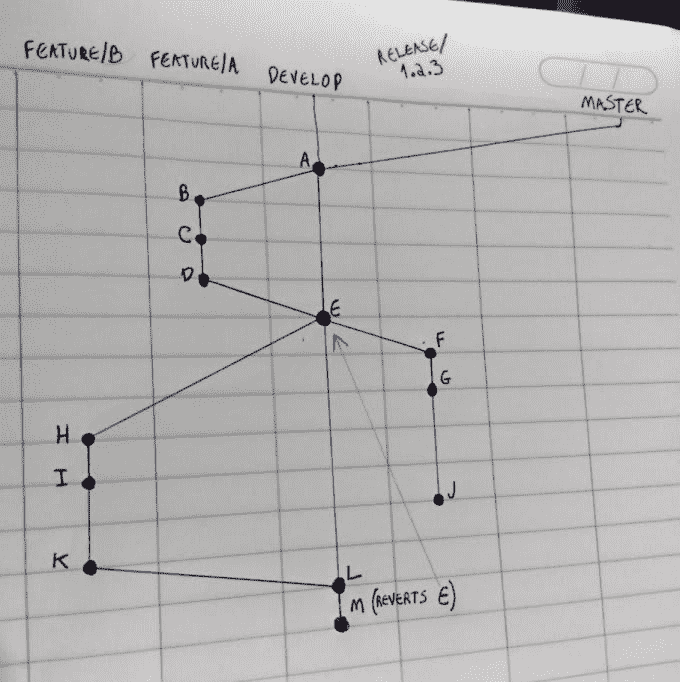 FEATURE/B
FEATURE/A
DEVELOP
RELEASE/
1.2.3
MASTER
A
B
C
D
E
F
G
H
I
J
K
L
M (REVERTS E)